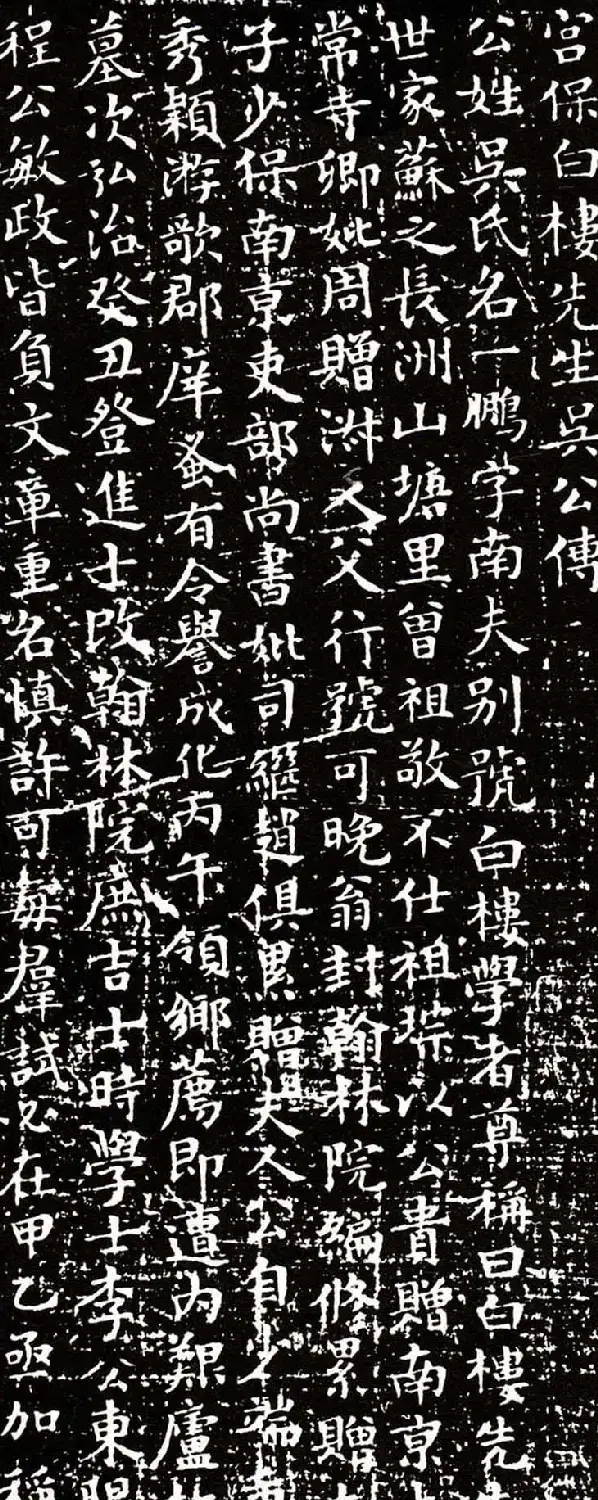 宫保白樓先生吳公傳
公姓吳氏名一鵬字南夫别號白樓學者尊稱曰白樓先
世家蘇之長洲山塘里曾祖敬不仕祖琮以公貴贈南京
常寺卿妣周贈淑人父行號可晚翁封翰林院編修累贈
子少保南京吏部尚書妣司繼趙俱累贈夫人公自少端
秀穎游歌郡庠蚤有令譽成化丙午領鄉薦即遭内艱廬
墓次弘治癸丑登進士改翰林院庶吉士時學士李公東
程公敏政皆負文章重名慎許可每羣試在甲乙亟加稱